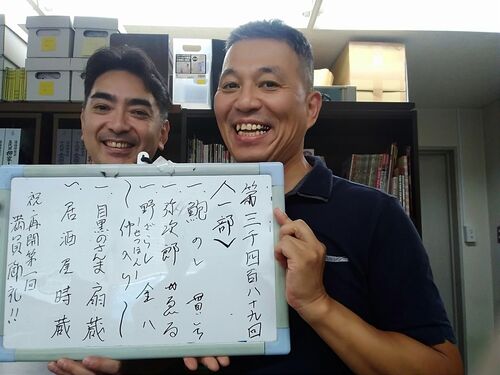 第三千四百八十九回
〈一部〉
一、鮑のし 貫いち
一、弥次郎 かゑる
一、野ざらし 金八
〜仲入り〜
一、目黒のさんま 扇蔵
一、居酒屋 時蔵
祝 再開第一回
満員御礼!!